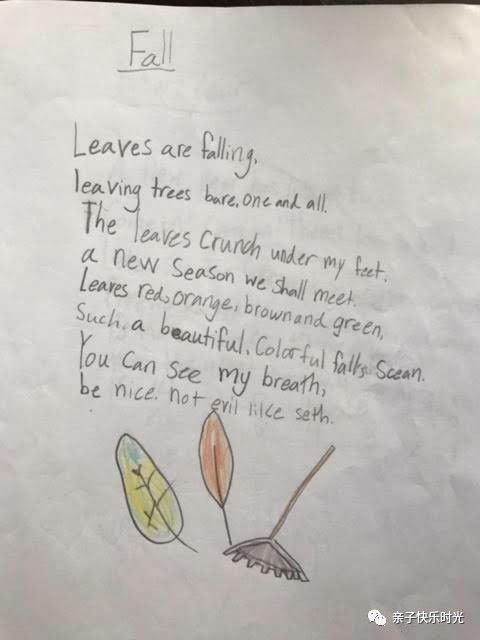 Fall
Leaves are falling,
leaving trees bare, one and all.
The leaves Crunch under my feet,
a new Season we shall meet.
Leaves red, orange, brown and green,
Such, a beautiful, Colorful falls Scean.
You Can See my breath,
be nice. not evil like seth.
亲子快乐时光